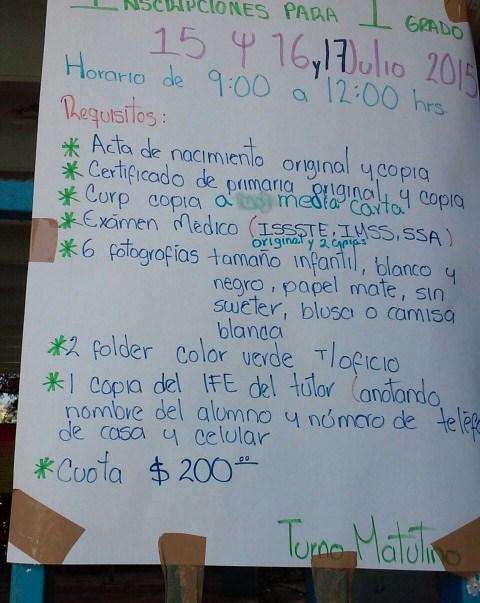 INSCRIPCIONES PARA 1 GRADO
15 y 16 y 17 Julio 2015
Horario de 9:00 a 12:00 hrs.
Requisitos:
* Acta de nacimiento original y copia
* Certificado de primaria original y copia
* Curp copia a media carta
* Exámen Médico (ISSSTE, IMSS, SSA)
original y 2 copias
* 6 fotografías tamaño infantil, blanco y
negro, papel mate, sin
sweter, blusa o camisa
blanca
* 2 folder color verde T/oficio
* 1 copia del IFE del tutor (anotando
nombre del alumno y número de teléfo
de casa y celular
* Cuota $200.00
Turno Matutino